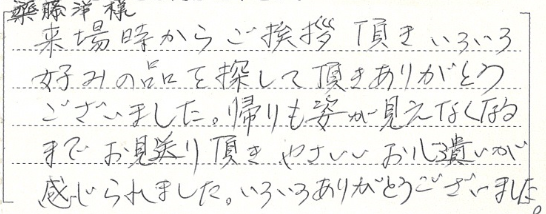 様
来場時からご挨拶 頂き いろいろ
好みの品を探して頂きありがとう
ございました。帰りも姿が見えなくなる
まで お見送り頂き やさしい お心遣いが
感じられました。いろいろありがとうございました。